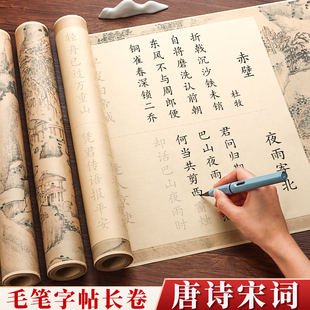 赤壁
杜牧
折戟沉沙铁未销
自将磨洗认前朝
东风不与周郎便
铜雀春深锁二乔
夜雨寄北
君问归期
巴山夜雨
何当共剪西
却话巴山夜雨时
轻舟已过万重山
凭君传语报平安
毛笔字帖长卷
唐诗宋词